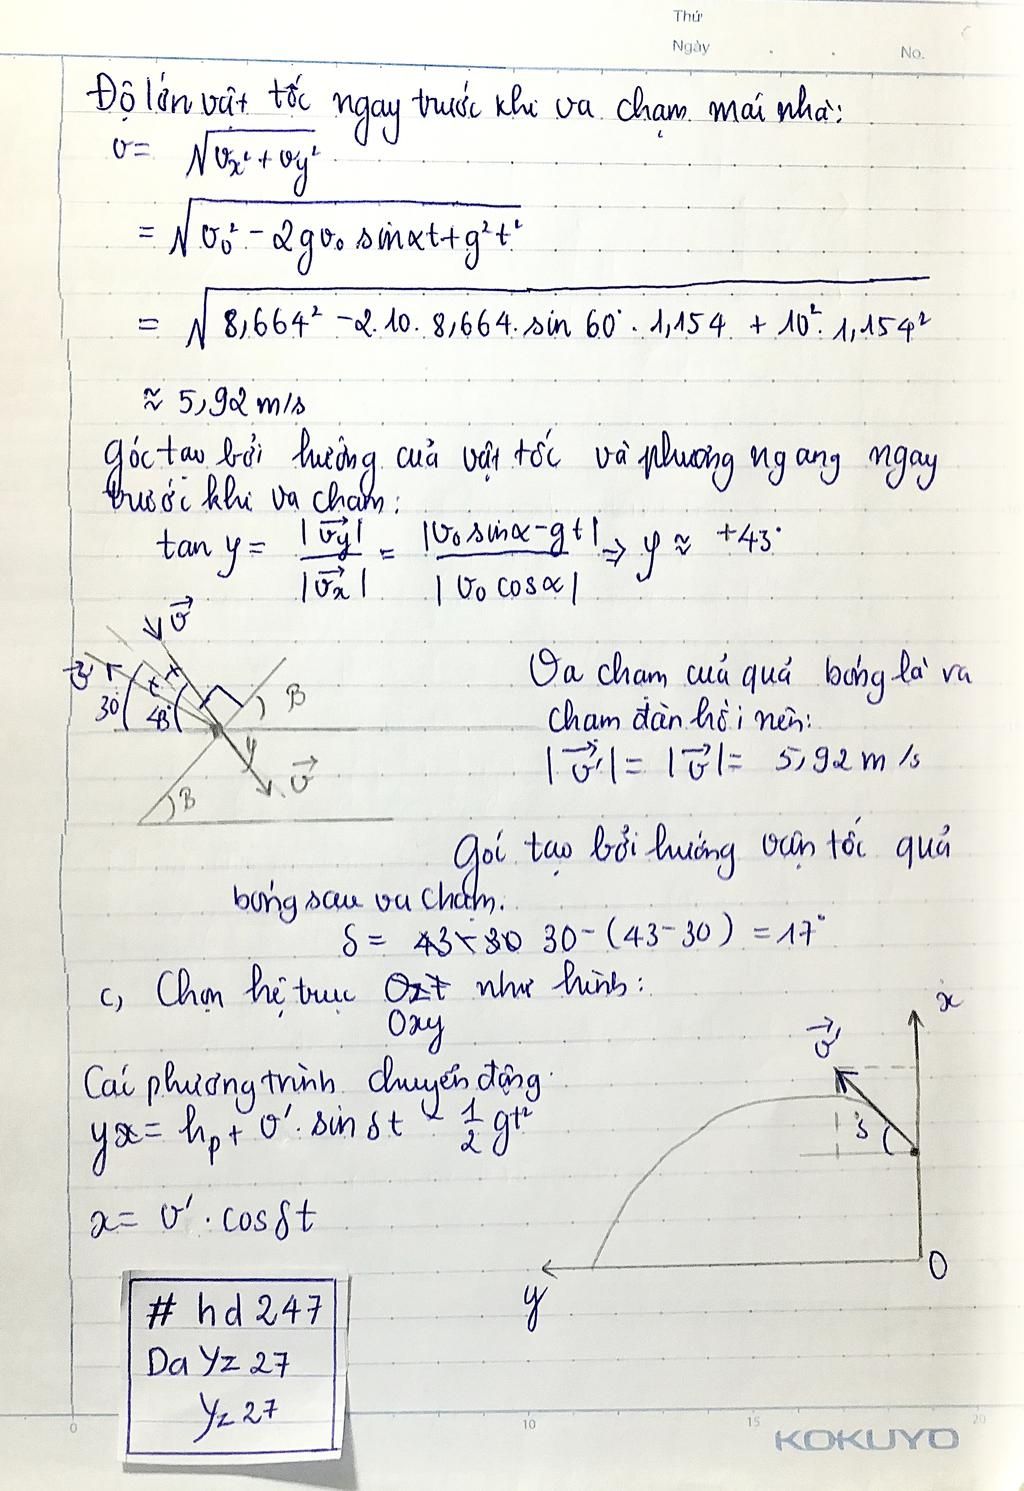 Thứ
Ngày . . No.
Độ lớn vật tốc ngay trước khi va chạm mái nhà:
v = √(vx² + vy²)
= √(v₀² - 2gv₀ sinαt + g²t²)
= √(8,664² - 2.10. 8,664. sin 60° . 1,154 + 10² . 1,154²)
≈ 5,92 m/s
Góc tạo bởi hướng của vật tốc và phương ngang ngay
trước khi va chạm:
tan y = |vy→| / |vx→| = |v₀ sinα - gt| / |v₀ cosα| ⇒ y ≈ +43°
v→
v→'
30°
43°
B
y
v→
B
Va chạm của quả bóng là va
chạm đàn hồi nên:
|v→'| = |v→| = 5,92 m/s
Gói tạo bởi hướng vận tốc quả
bóng sau va chạm.
δ = 43 - 30 30 - (43 - 30) = 17°
c, Chọn hệ trục Ozt như hình:
Oxy
Các phương trình chuyển động.
yx = hp + v' . sin δt - ½ gt²
x = v' . cos δt
x
v→'
δ
O
y
# hd 247
Da Yz 27
Yz 27
0 10 15 20
KOKUYO